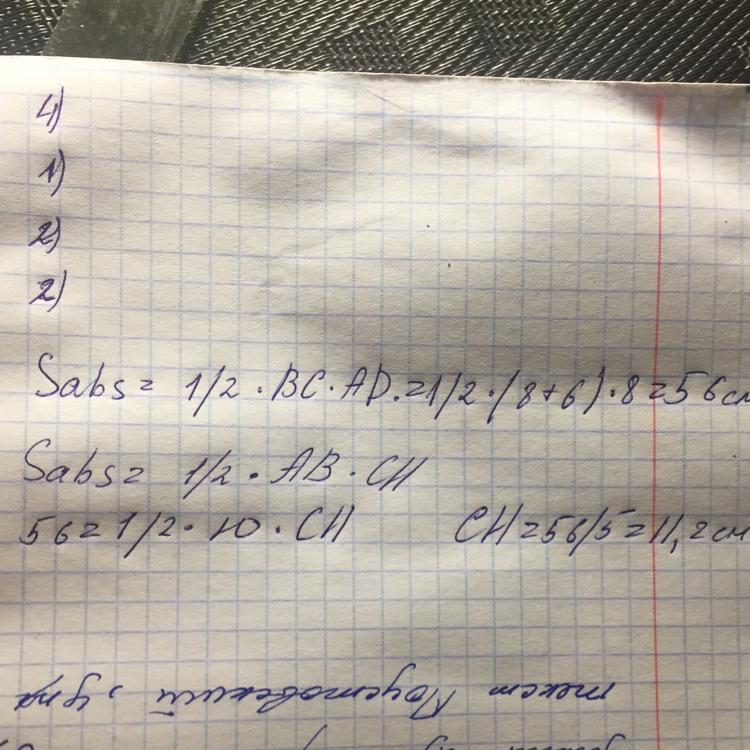 4)
1)
2)
2)
Sabs = 1/2 · BC · AD. = 1/2 · (8+6) · 8 = 56 см
Sabs = 1/2 · AB · CH
56 = 1/2 · 10 · CH CH = 56/5 = 11,2 см
текст Паустовский, упр